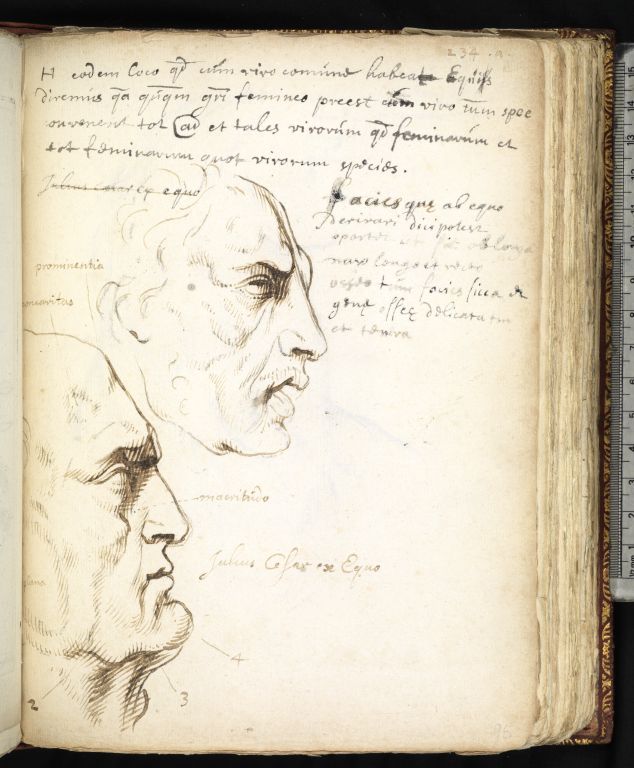 234. a.
H eodem loco qd cum viro comune habeat Equus
diremus qa quqm gri femineo preest cum viro tum spee
convenerit tot ad et tales virorum qd feminarum et
tot feminarum quot virorum species.
Julius Cesar ex equo
Facies quę ab equo
derivari dici potest
oportet ut sit oblonga
naso longo et recto
osseo tum facies sicca et
genę offeę delicata tm
et tenera
prominentia
concavitas
macritudo
Julius Cesar ex Equo
plana
4
2
3